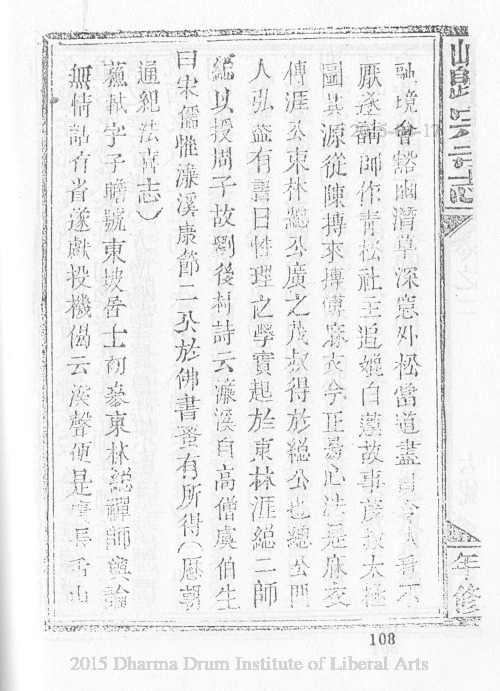 融境會豁幽潛草深窓外松當道盡日令人看不
厭遂請師作青松社主追媲白蓮故事茂叔太極
圖其源從陳摶來摶傳麻衣今正易心法是麻衣
傳涯公東林總公廣之茂叔得於總公也總公門
人弘益有書曰性理之學實起於東林涯總二師
總以授周子故劉後村詩云濂溪自高僧虞伯生
曰宋儒惟濂溪康節二公於佛書蚤有所得(歷朝
通紀法喜志)
蘇軾字子瞻號東坡居士初參東林總禪師與論
無情話有省遂獻投機偈云溪聲便是廣長舌山
年修
108
2015 Dharma Drum Institute of Liberal Arts